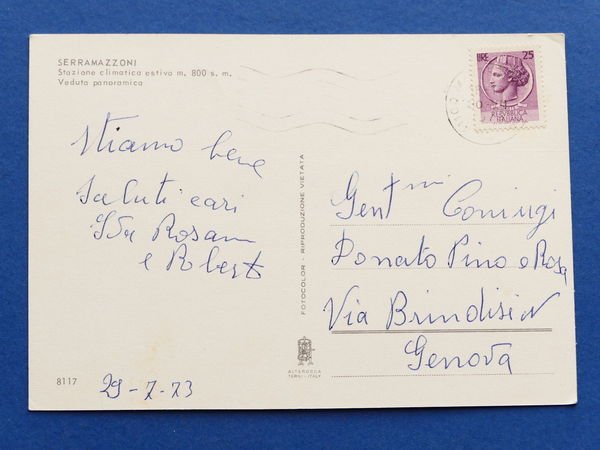 SERRAMAZZONI
Stazione climatica estiva m. 800 s. m.
Veduta panoramica
LIRE 25
REPUBBLICA
ITALIANA
Stiamo bene
Saluti cari
Ida Rosam
e Robert
29-7-73
8117
FOTOCOLOR - RIPRODUZIONE VIETATA
ALTEROCCA
TERNI - ITALY
Gent mi Coniugi
Donato Pino e Rosa
Via Brindisi
Genova